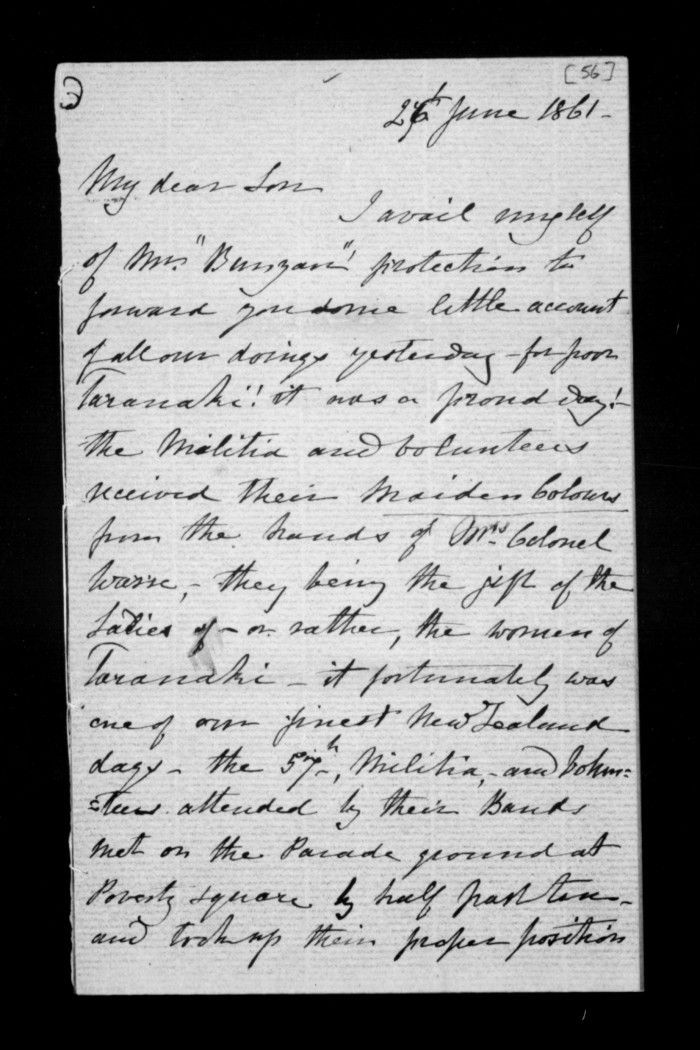 [56]
26th June 1861-
My dear Son
I avail myself
of Mrs "Bunyan"! protection to
forward you some little account
of all our doings yesterday - for poor
Taranaki! it was a proud day! -
the Militia and Volunteers
received their Maiden Colours
from the hands of Mrs. Colonel
Warre, - they being the gift of the
Ladies of - or rather, the women of
Taranaki - it fortunately was
one of our finest New Zealand
days - the 57th, Militia, - and Volun=
=teers attended by their Bands
met on the Parade ground at
Poverty square by half past ten -
and took up their proper position